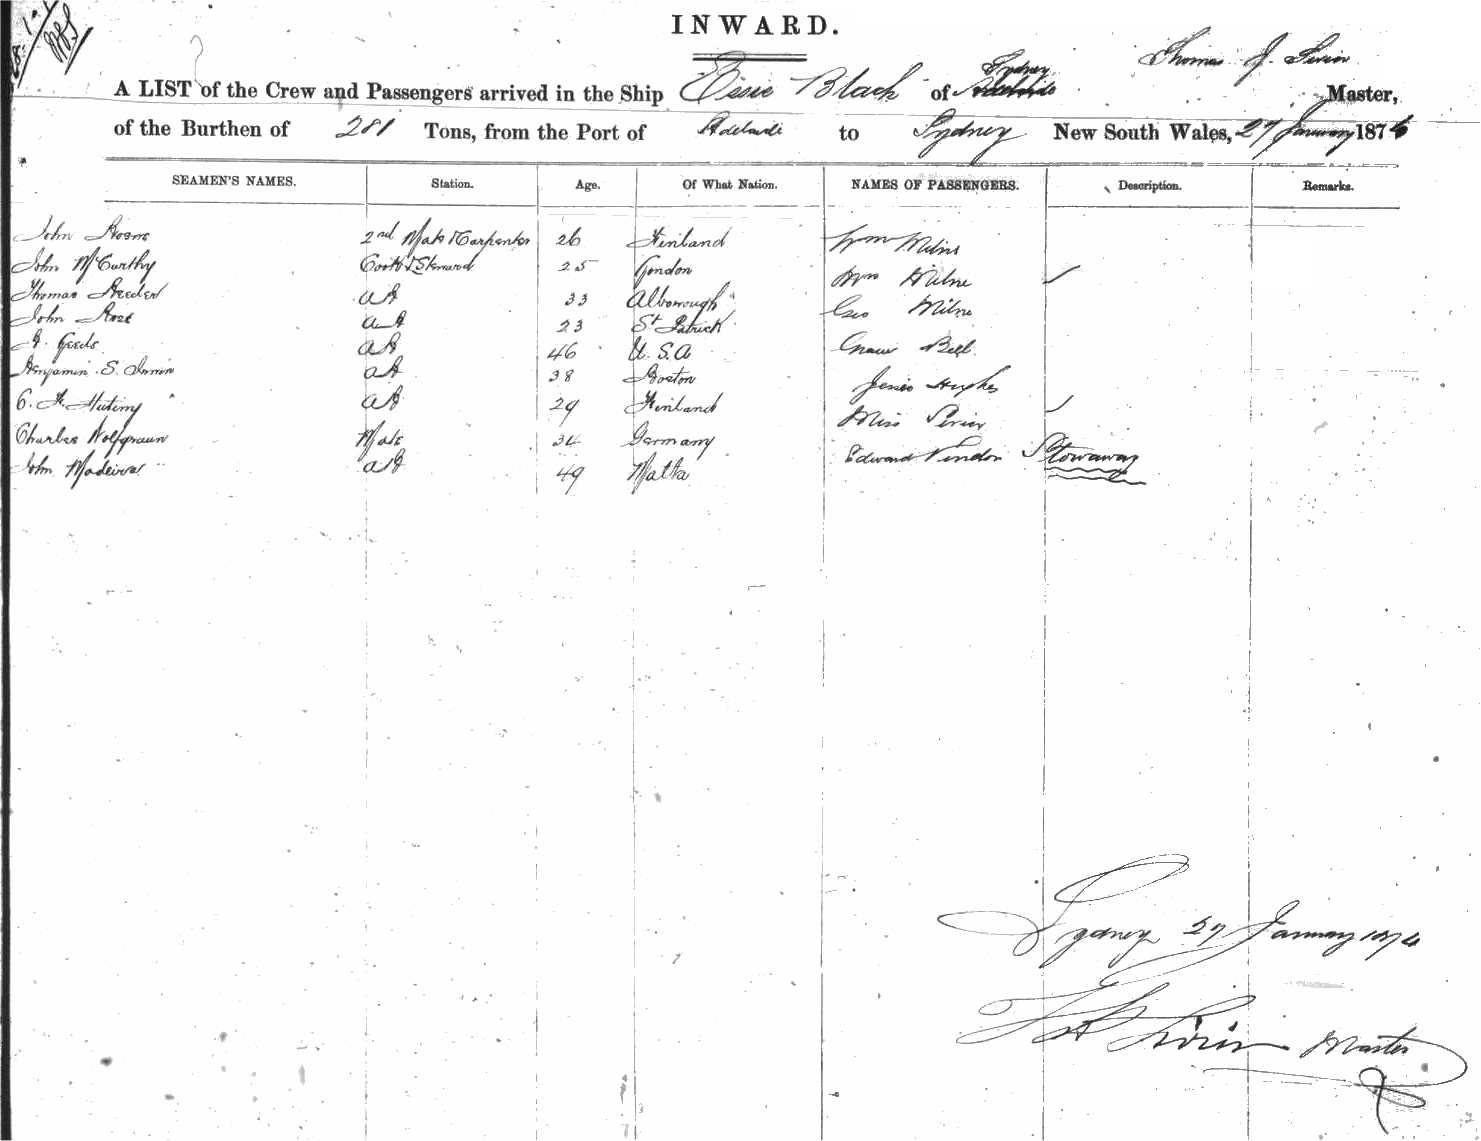 INWARD.
A LIST of the Crew and Passengers arrived in the Ship "Essie Black" of Sydney Thomas J. Master,
of the Burthen of 281 Tons, from the Port of Adelaide to Sydney New South Wales, 27 January 1874
SEAMEN'S NAMES. Station. Age. Of What Nation. NAMES OF PASSENGERS. Description. Remarks.
John 2nd Mate & Carpenter 26 Finland Wm Milne
John McCarthy Cook & Steward 25 London Wm Milne
Thomas AB 33 Alborough Geo Milne
John Rose AB 23 St Patrick Bell
Geeds AB 46 U.S.A Jessie Hughes
Benjamin S. AB 38 Boston Miss
C. F. AB 29 Finland Edward Stowaway
Charles Wolfgraun Mate 34 Germany
John Madeiros AB 49 Malta
Sydney 27 January 1874
Master